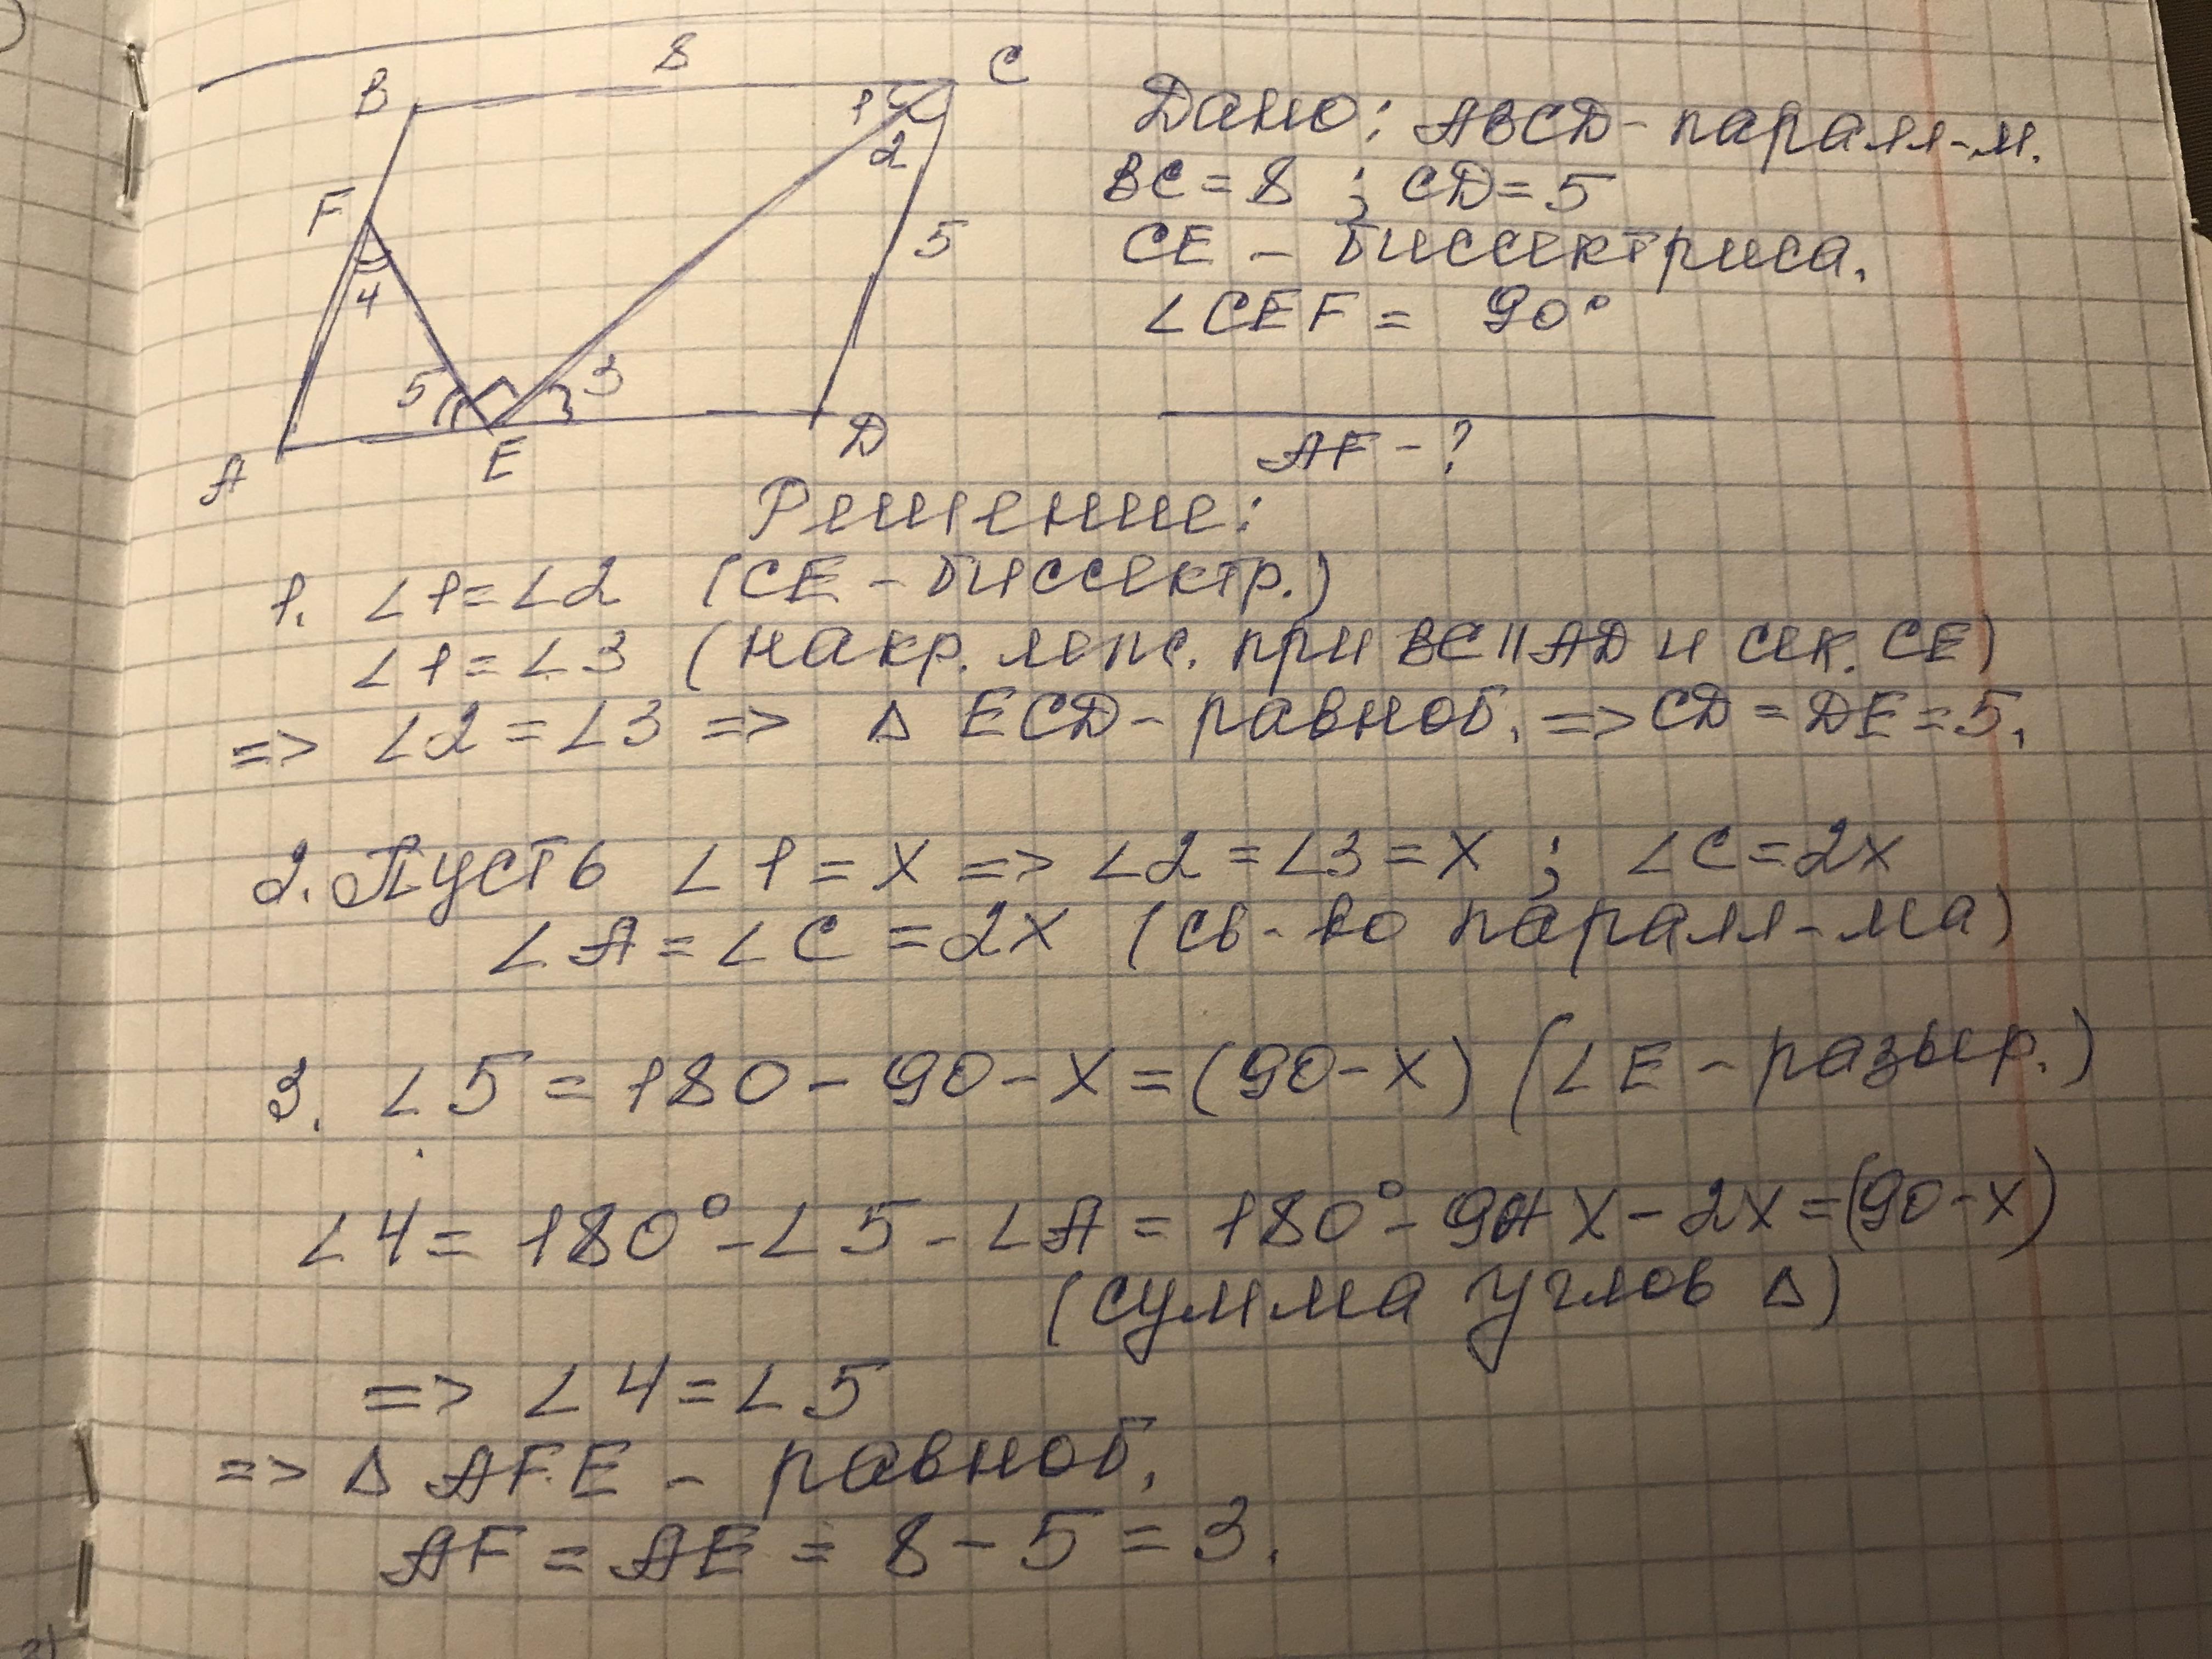 B 8 C
1
2
F
4
5
5 3
A E D
Дано: ABCD - паралл-м.
BC = 8 ; CD = 5
CE - биссектриса.
∠CEF = 90°
AF - ?
Решение:
1. ∠1 = ∠2 (CE - биссектр.)
∠1 = ∠3 (накр. леж. при BC || AD и сек. CE)
=> ∠2 = ∠3 => Δ ECD - равноб. => CD = DE = 5.
2. Пусть ∠1 = x => ∠2 = ∠3 = x ; ∠C = 2x
∠A = ∠C = 2x (св-во паралл-ма)
3. ∠5 = 180 - 90 - x = (90 - x) (∠E - разв.)
∠4 = 180° - ∠5 - ∠A = 180° - 90 + x - 2x = (90 - x)
(сумма углов Δ)
=> ∠4 = ∠5
=> Δ AFE - равноб.
AF = AE = 8 - 5 = 3.